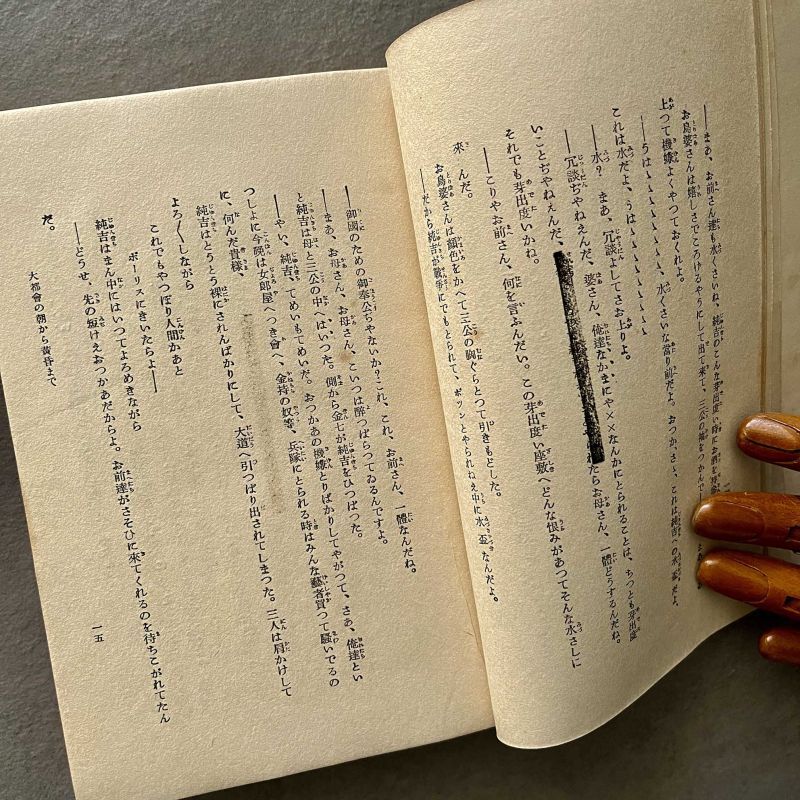 ――まあ、お前さん達も水くさいね、純吉のこんな芽出度い時にお酒を
お鳥婆さんは嬉しさでころげるやうにして出て来て、三公の袖をつかんで
上つて機嫌よくやつておくれよ。
――うはゝゝゝゝゝゝ、水くさいな當り前だよ。おつかさん、これは純吉への水盃だよ。
これは水だよ、うはゝゝゝゝゝゝ
――水? まあ、冗談よしてさお上りよ。
――冗談ぢやねえんだ、婆さん、俺達なかまにや××なんかにとられることは、ちつとも芽出度
いことぢやねえんだ、たらお母さん、一體どうするんだね。
それでも芽出度いかね。
――こりやお前さん、何を言ふんだい。この芽出度い座敷へどんな恨みがあつてそんな水さしに
來んだ。
お鳥婆さんは顔色をかへて三公の胸ぐらとつて引きもどした。
――だから純吉が戰爭にでもとられて、ポツンとやられねえ中に水盃なんだよ。
――御國のための御奉公ぢやないか?これ、これ、お前さん、一體なんだね。
――まあ、お母さん、お母さん、こいつは醉つぱらつてゐるんですよ。
と純吉は母と三公の中へはいつた。側から金七が純吉をひつぱつた。
――やい、純吉、てめいもてめいだ。おつかあの機嫌とりばかりしてやがつて、さあ、俺達とい
つしよに今晩は女郎屋へつき會へ、金持の奴等、兵隊にとられる時はみんな藝者買つて騷いでるの
に、何んだ貴様、
純吉はとうとう裸にされんばかりにして、大道へ引つぱり出されてしまつた。三人は肩かけして
よろ〱しながら
これでもやつぱり人間かあと
ポーリスにきいたらよ――
純吉はまん中にはいつてよろめきながら
――どうせ、先の短けえおつかあだからよ。お前達がさそひに來てくれるのを待ちこがれてたん
だ。
大都會の朝から黄昏まで
一五